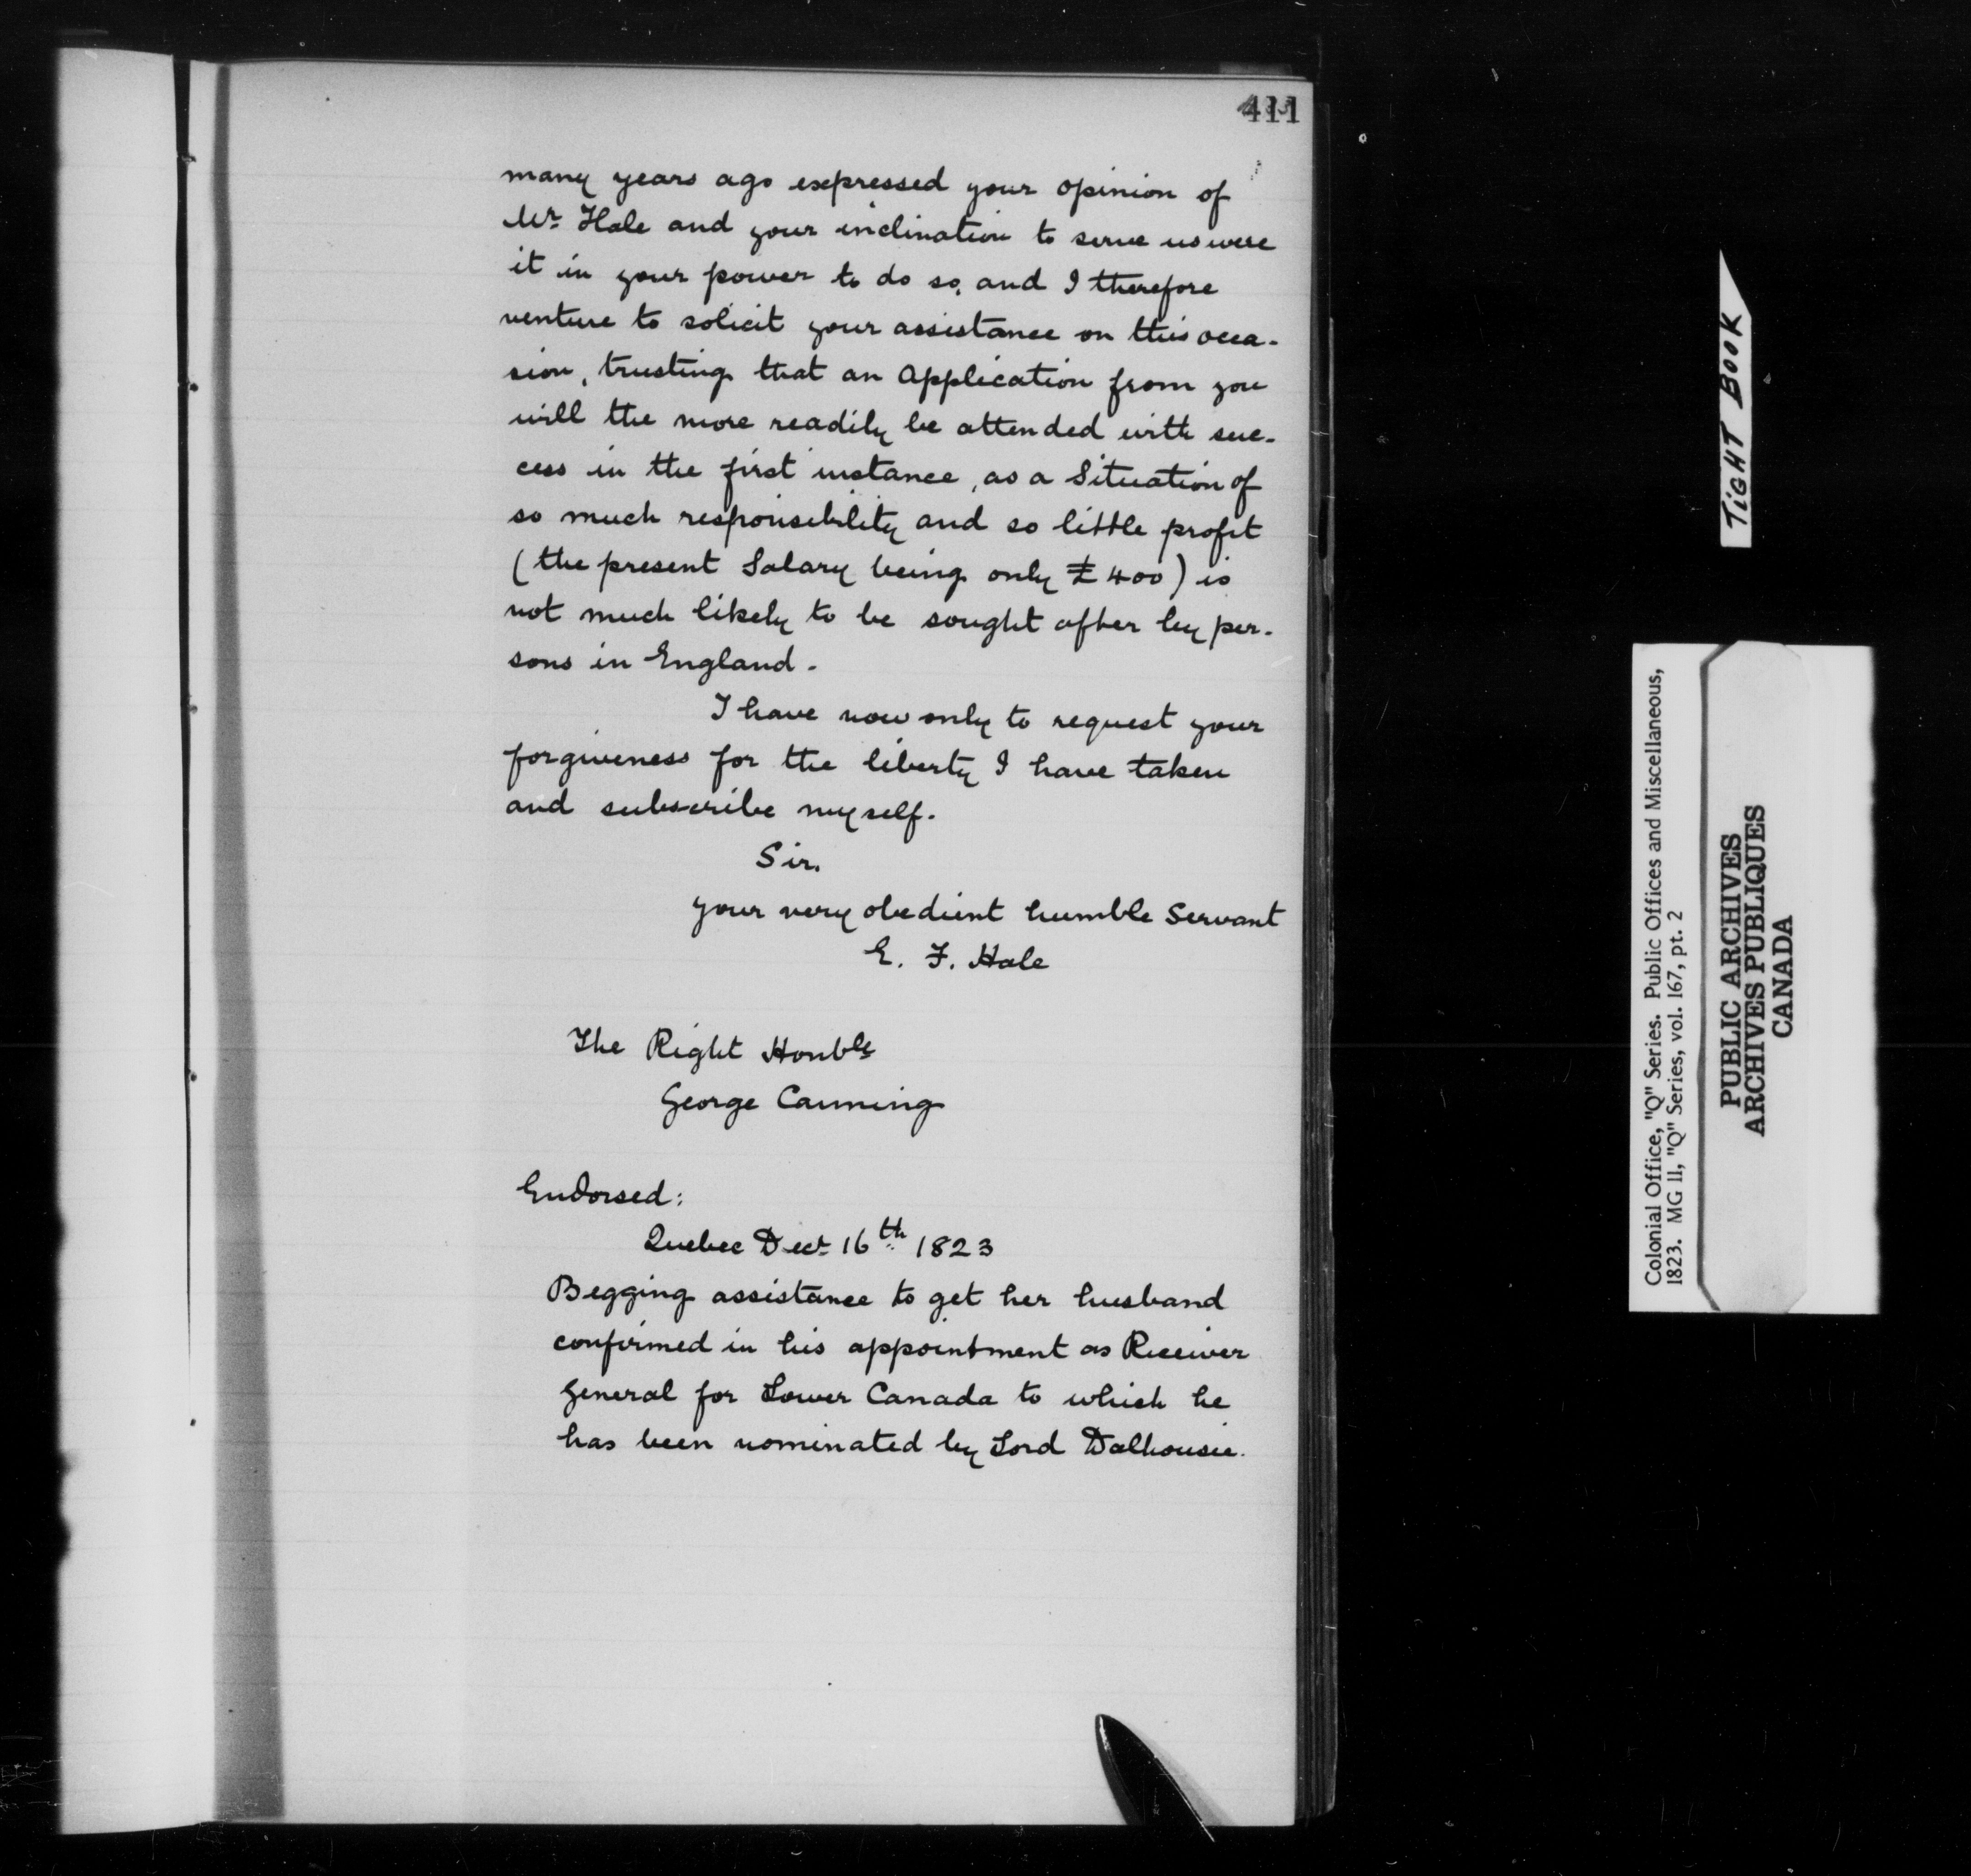 411
many years ago expressed your opinion of
Mr. Hale and your inclination to serve us were
it in your power to do so, and I therefore
venture to solicit your assistance on this occa-
sion, trusting that an Application from you
will the more readily be attended with suc-
cess in the first instance, as a Situation of
so much responsibility and so little profit
(the present Salary being only £400) is
not much likely to be sought after by per-
sons in England.
I have now only to request your
forgiveness for the liberty I have taken
and subscribe myself.
Sir.
your very obedient humble Servant
E. F. Hale
The Right Honble
George Canning
Endorsed:
Quebec Decr 16th 1823
Begging assistance to get her husband
confirmed in his appointment as Receiver
General for Lower Canada to which he
has been nominated by Lord Dalhousie.
TIGHT BOOK
Colonial Office, "Q" Series. Public Offices and Miscellaneous,
1823. MG 11, "Q" Series, vol. 167, pt. 2
PUBLIC ARCHIVES
ARCHIVES PUBLIQUES
CANADA